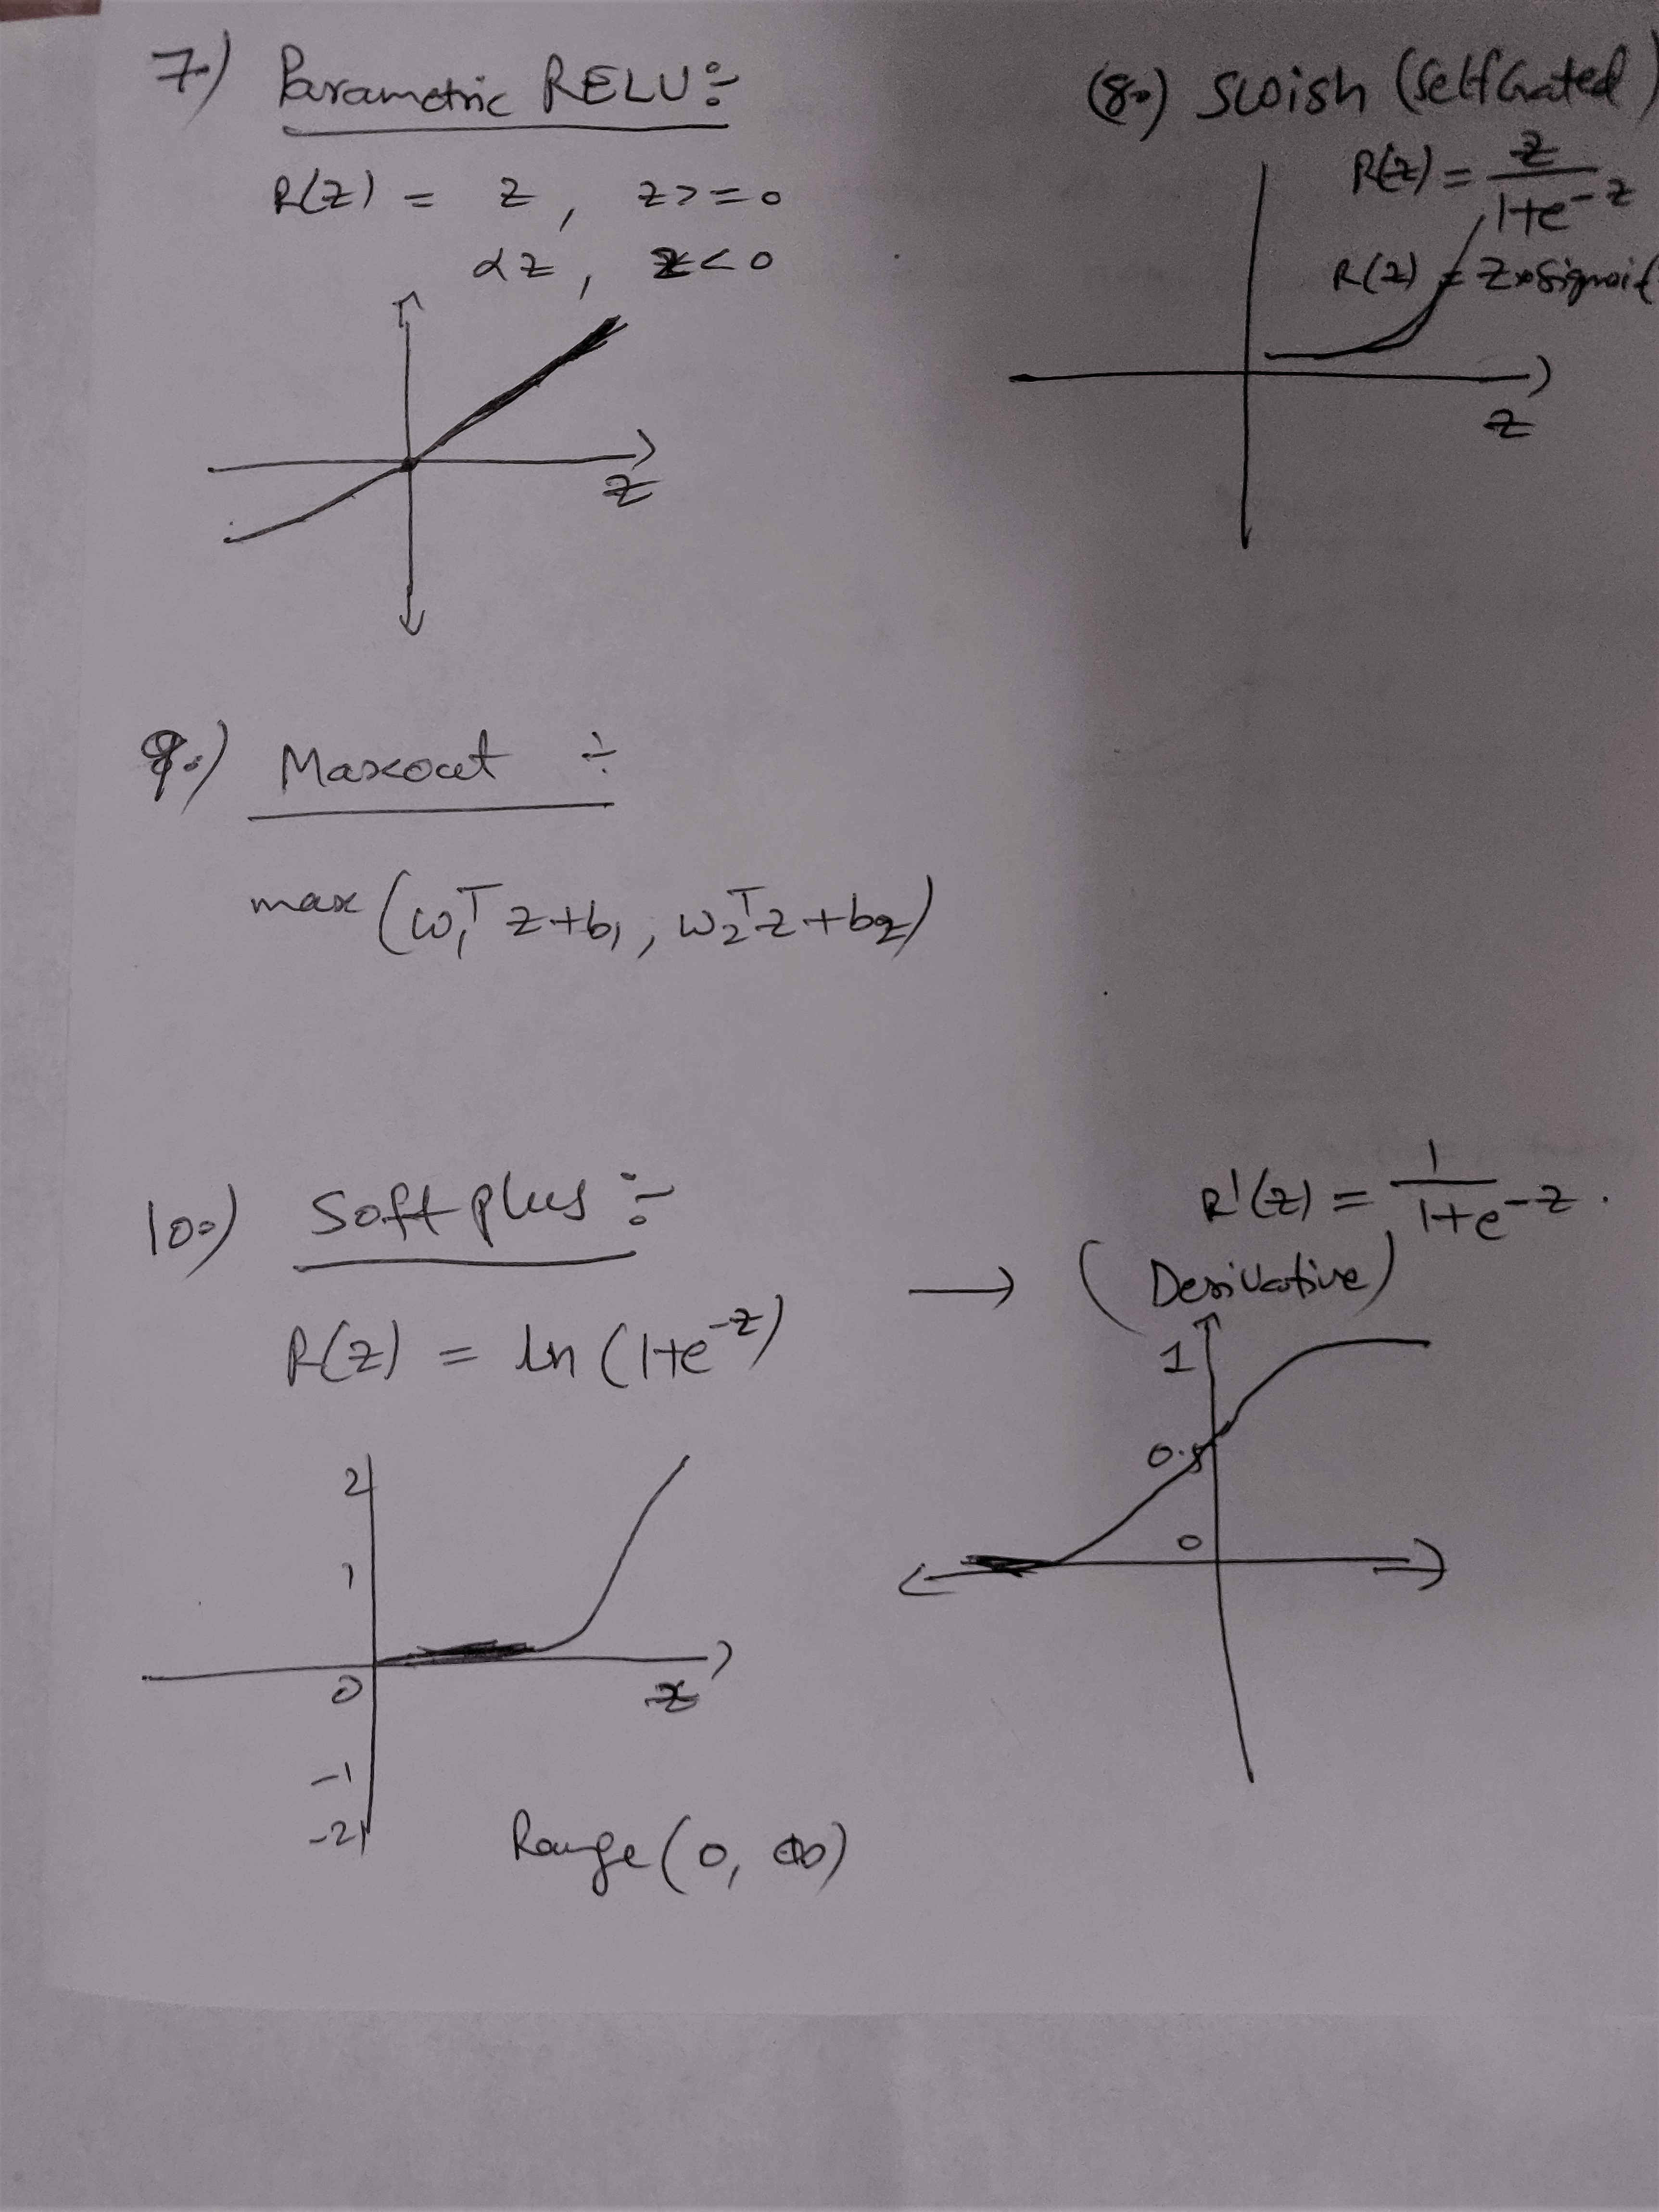 7.) Parametric RELU ÷
R(z) = z , z>=0
αz , z<0
z
(8.) Swish (Self Gated)
R(z) = z / 1+e^-z
R(z) = z*sigmoid
z
9.) Maxout ÷
max (w₁ᵀ z+b₁, w₂ᵀz+b₂)
10.) Softplus ÷
R(z) = ln (1+e^-z)
2
1
0
-1
-2
z
Range (0, ∞)
→ R'(z) = 1 / 1+e^-z .
(Derivative)
1
0.5
0